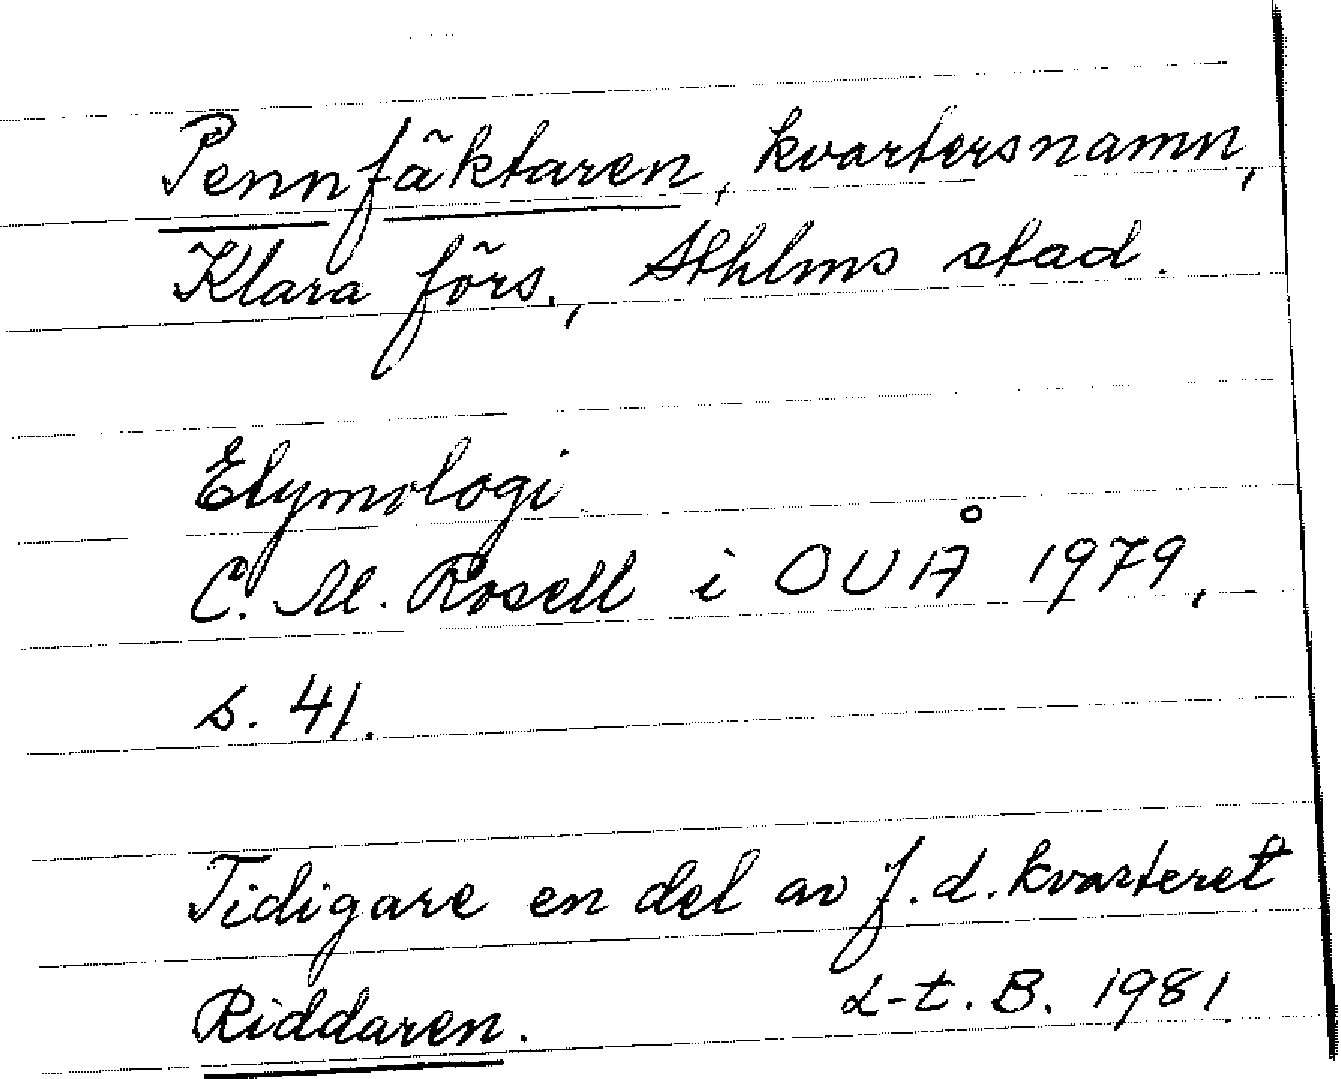 Pennfäktaren, kvartersnamn,
Klara förs., Sthlms stad.
Etymologi
C. M. Rosell i OUÅ 1979,
s. 41.
Tidigare en del av f.d. kvarteret
Riddaren. L-t. B. 1981